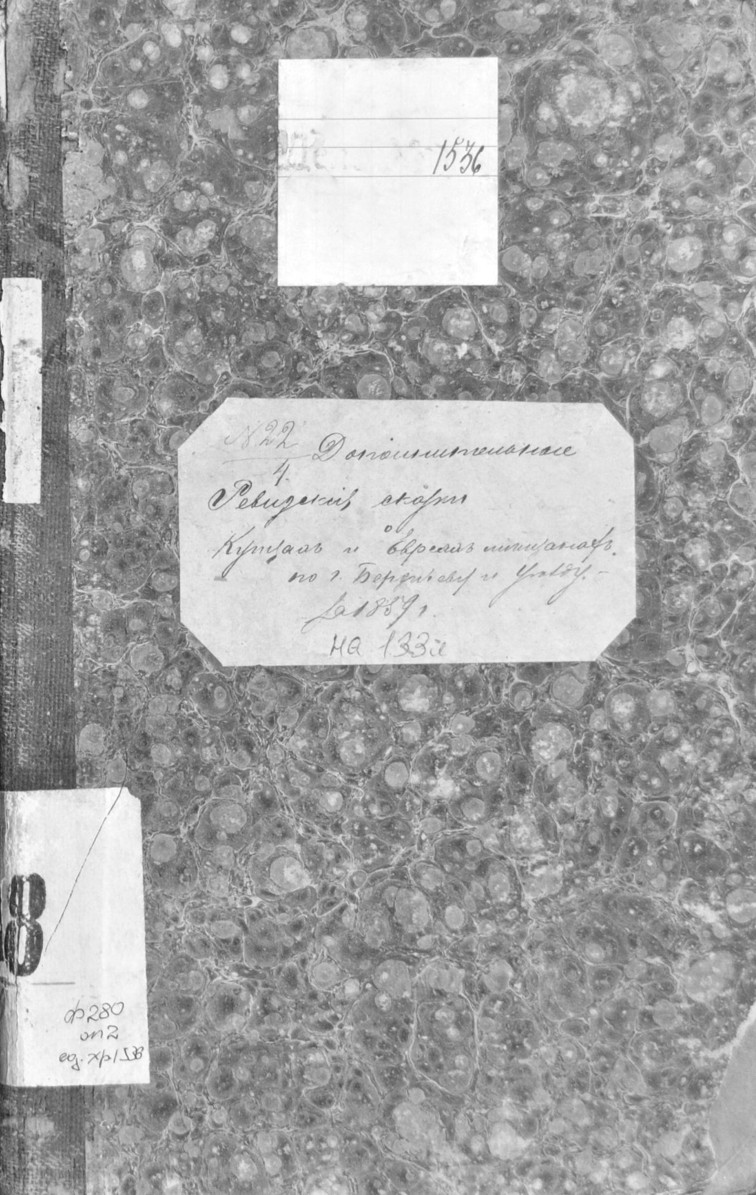 1536
№ 22
4.
Дополнительные
Ревизскія сказки
о
Купцахъ и Евреяхъ мещанахъ
по г. Бердичеву и Уезду. –
За 1859 г.
на 133 л
ф 280
оп 2
ед. хр